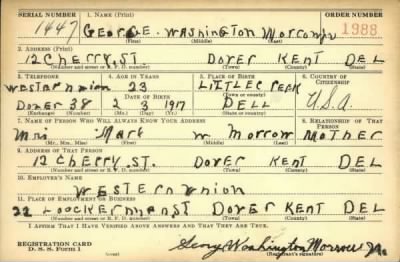 SERIAL NUMBER 1. NAME (Print) ORDER NUMBER
1447 GEORGE WASHINGTON MORROW Jr 1988
(First) (Middle) (Last)
2. ADDRESS (Print)
12 CHERRY ST. DOVER KENT DEL
(Number and street or R. F. D. number) (Town) (County) (State)
3. TELEPHONE 4. AGE IN YEARS 5. PLACE OF BIRTH 6. COUNTRY OF CITIZENSHIP
Western Union 23 LITTLE CREEK
(Town or county)
DATE OF BIRTH
DOVER 38 2 3 1917 DELL U.S.A.
(Exchange) (Number) (Mo.) (Day) (Yr.) (State or country)
7. NAME OF PERSON WHO WILL ALWAYS KNOW YOUR ADDRESS 8. RELATIONSHIP OF THAT PERSON
Mrs Mary W MORROW MOTHER
(Mr., Mrs., Miss) (First) (Middle) (Last)
9. ADDRESS OF THAT PERSON
12 CHERRY, ST. DOVER KENT DEL
(Number and street or R. F. D. number) (Town) (County) (State)
10. EMPLOYER'S NAME
WESTERN UNION
11. PLACE OF EMPLOYMENT OR BUSINESS
22 LOOCKERMAN ST DOVER KENT DEL
(Number and street or R. F. D. number) (Town) (County) (State)
I AFFIRM THAT I HAVE VERIFIED ABOVE ANSWERS AND THAT THEY ARE TRUE.
REGISTRATION CARD
D. S. S. Form 1 George Washington Morrow Jr.
(over) (Registrant's signature)